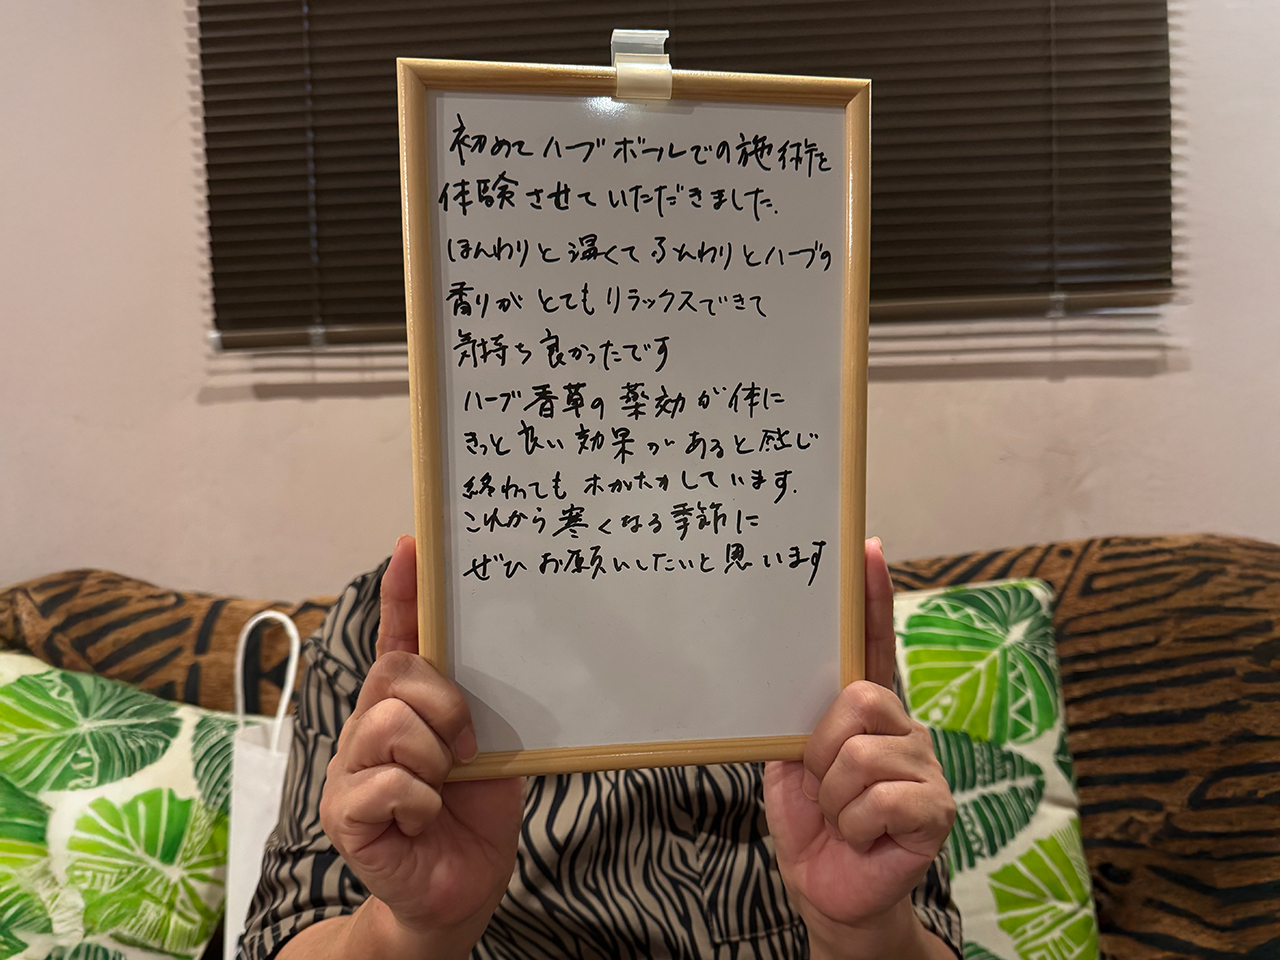 初めてハーブボールでの施術を
体験させていただきました.
ほんわりと温くてふんわりとハーブの
香りがとてもリラックスできて
気持ち良かったです
ハーブ香草の薬効が体に
きっと良い効果があると感じ
終わってもホカホカしています.
これから寒くなる季節に
ぜひお願いしたいと思います